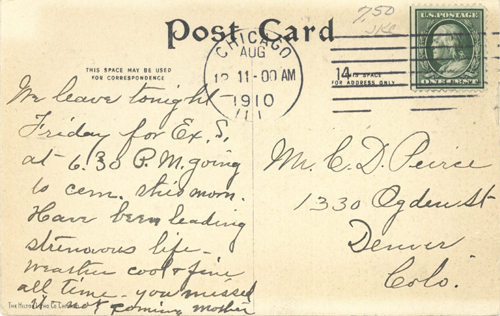 7.50
Post Card
CHICAGO
AUG
12 11-00 AM
1910
ILL
14
U.S. POSTAGE
ONE CENT
THIS SPACE MAY BE USED
FOR CORRESPONDENCE
THIS SPACE
FOR ADDRESS ONLY
We leave tonight
Friday for Ex. S.
at 6.30 P.M. going
to cem. this morn.
Have been leading
strenuous life -
weather cool & fine
all time - you missed
it not coming Mother
Mr. C. D. Peirce
1330 Ogden St
Denver
Colo.